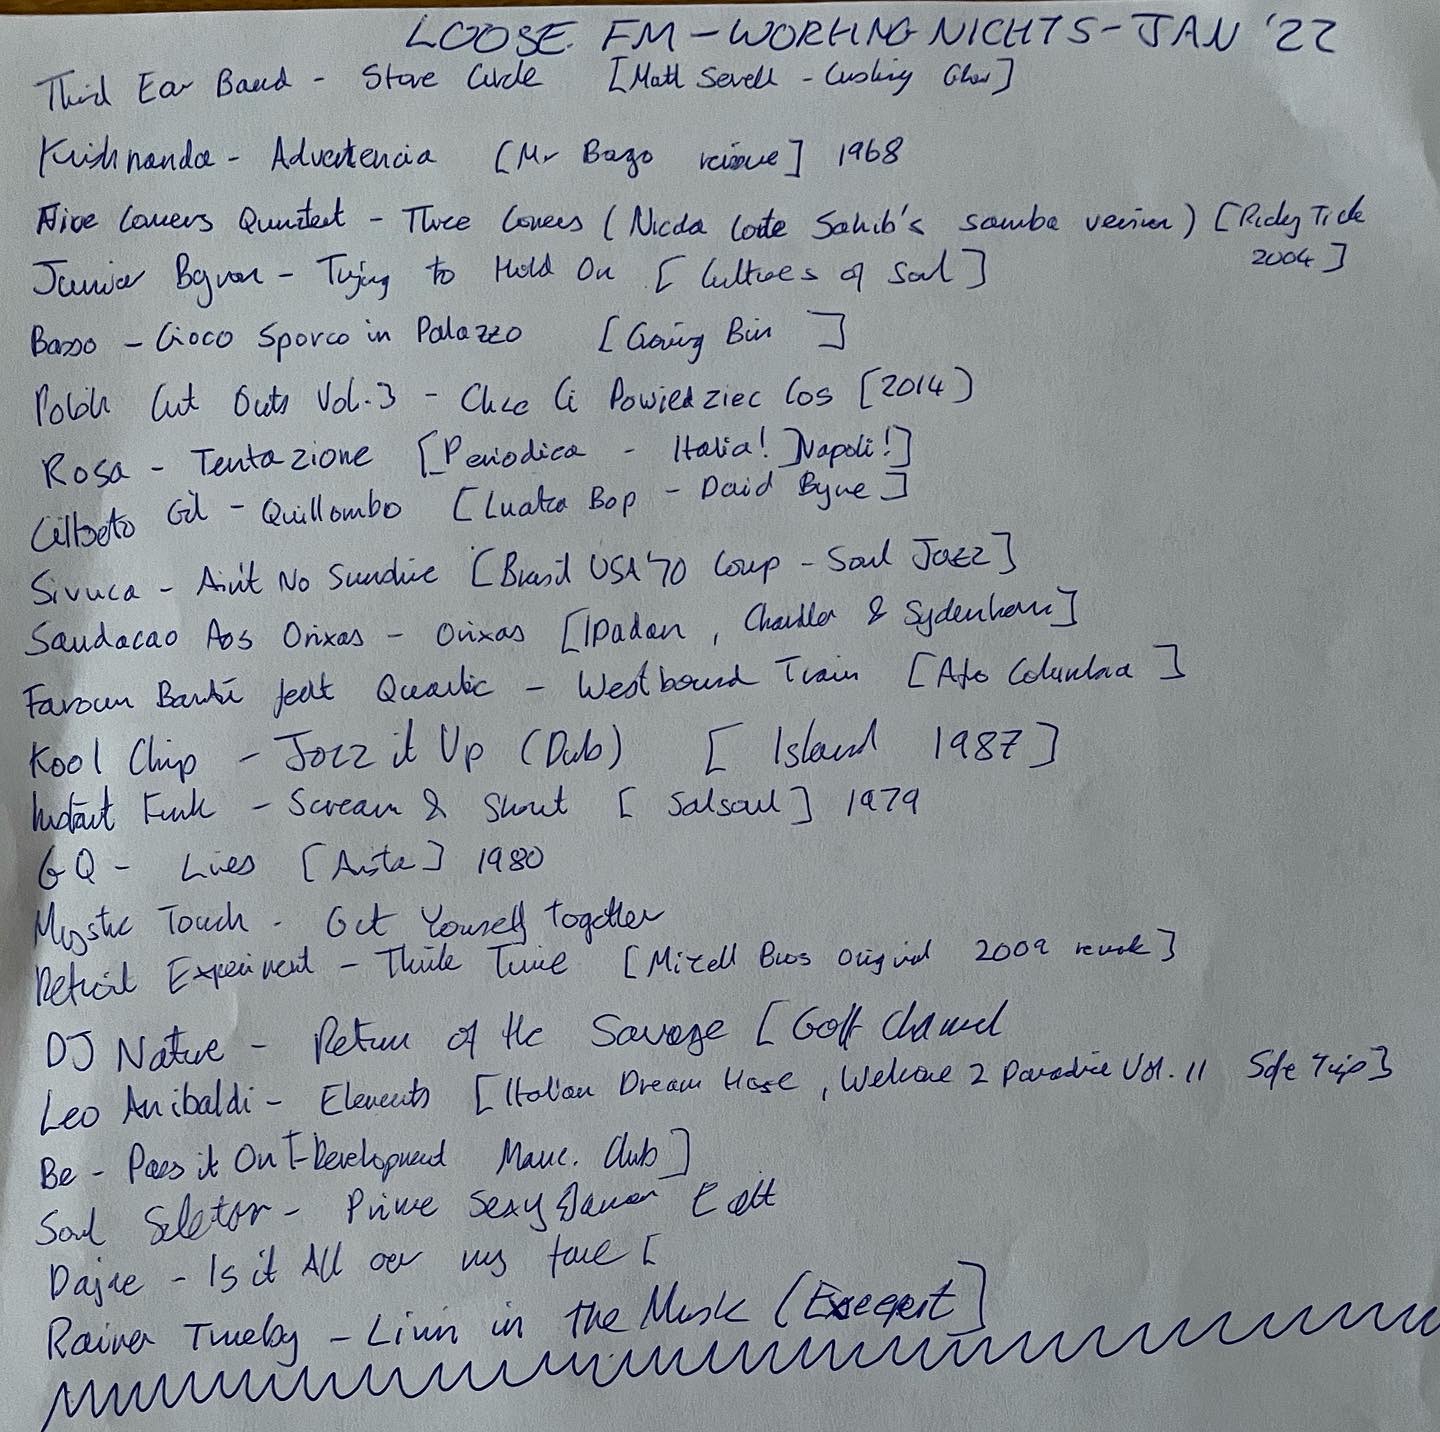 LOOSE FM - WORKING NIGHTS - JAN '22
Third Ear Band - Stone Circle [Matt Sewell - Crushing Glow]
Krishnanda - Advertencia [Mr Bago reissue] 1968
Five Corners Quintent - Three Corners (Nicola Conte Sahib's samba version) [Ricky Tick
2004]
Junior Byron - Trying to Hold On [Cultures of Soul]
Basso - Gioco Sporco in Palazzo [Growing Bin]
Polish Cut Outs Vol.3 - Chce Ci Powiedziec Cos [2014]
Rosa - Tentazione [Periodica - Italia! Napoli!]
Gilberto Gil - Quillombo [Luaka Bop - David Byrne]
Sivuca - Ain't No Sunshine [Brasil USA '70 Comp - Soul Jazz]
Saudacao Aos Orixas - Orixas [Ipadan, Chandler & Sydenham]
Westbound Train [Afro Columbia]
Kool Chip - Jazz it Up (Dub) [Island 1987]
Instant Funk - Scream & Shout [Salsoul] 1979
GQ - Lies [Arista] 1980
Mystic Touch - Get Yourself Together
Detroit Experiment - Think Twice [Mizell Bros original 2009 rework]
DJ Nature - Return of the Savage [Golf Channel
Leo Anibaldi - Elements [Italian Dream House, Welcome 2 Paradise Vol. 11 Safe Trip]
Be - Pass it On [-Development Manc. Club]
Soul Selektor - Prince Sexy Dancer Edit
Dajae - Is it All over my face [
Rainer Trueby - Livin in the Musik (Excerpt]